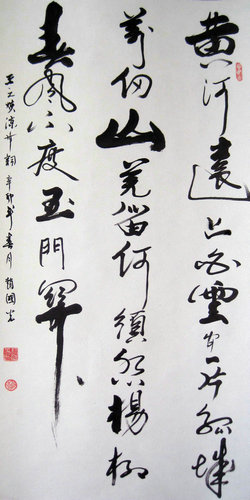 黄河遠上白雲間一片孤城
萬仞山羌笛何須怨楊柳
春風不度玉門關
王之渙涼州詞辛卯春月